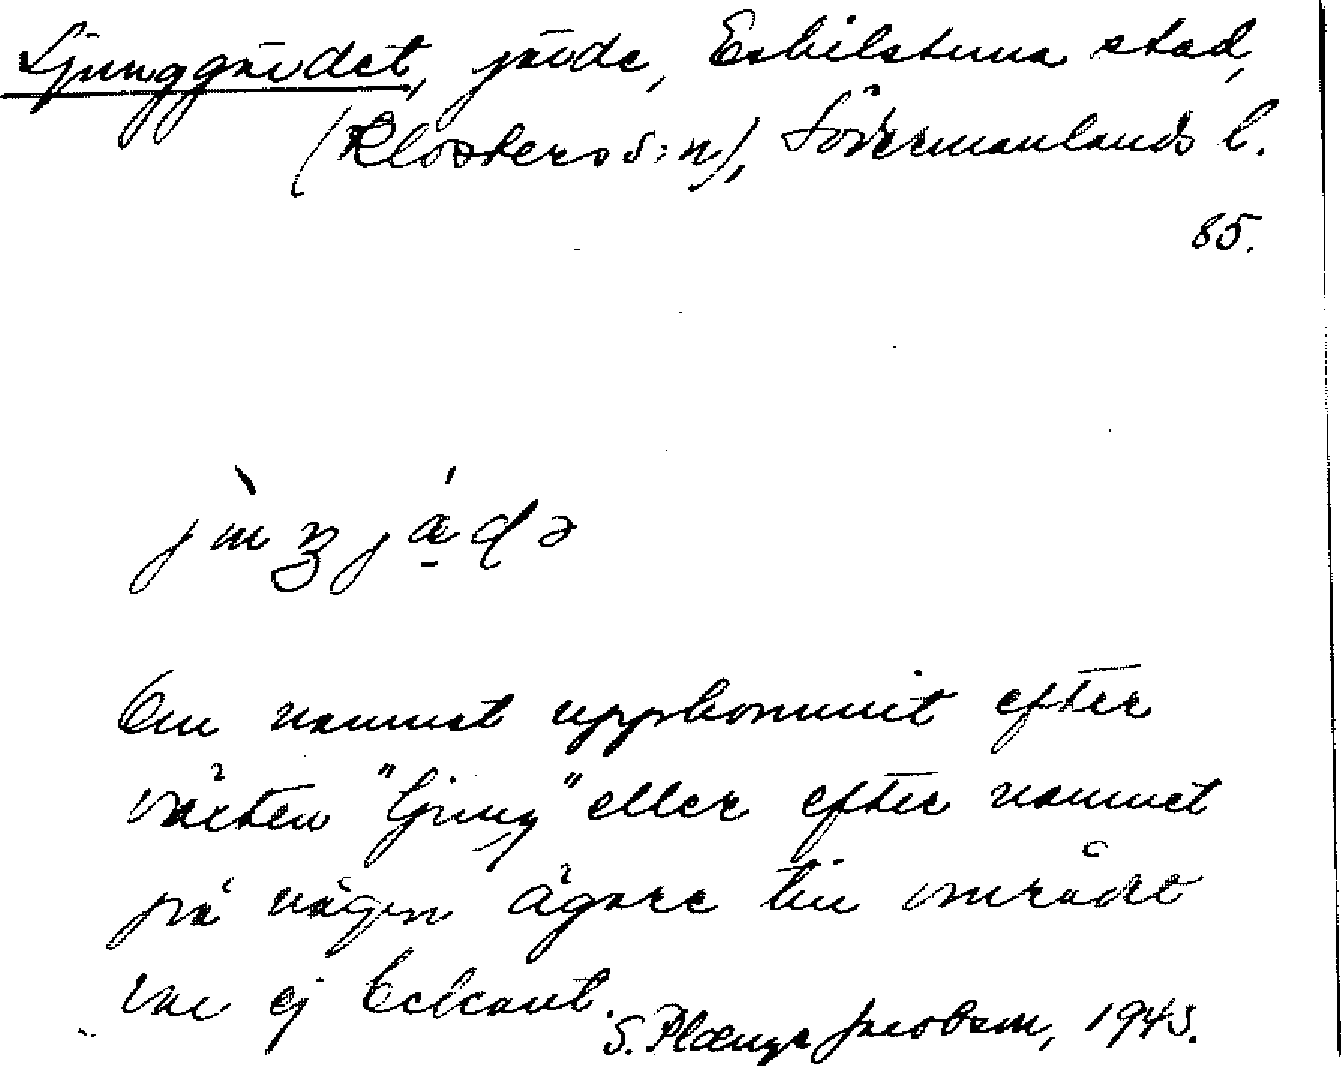 Ljunggärdet, järde, Eskilstuna stad,
(Klosters s:n), Södermanlands l.
85.
Om namnet uppkommit efter
växten "ljung" eller efter namnet
på någon ägare till området
var ej bekant.
S. Plænge Jacobson, 1945.